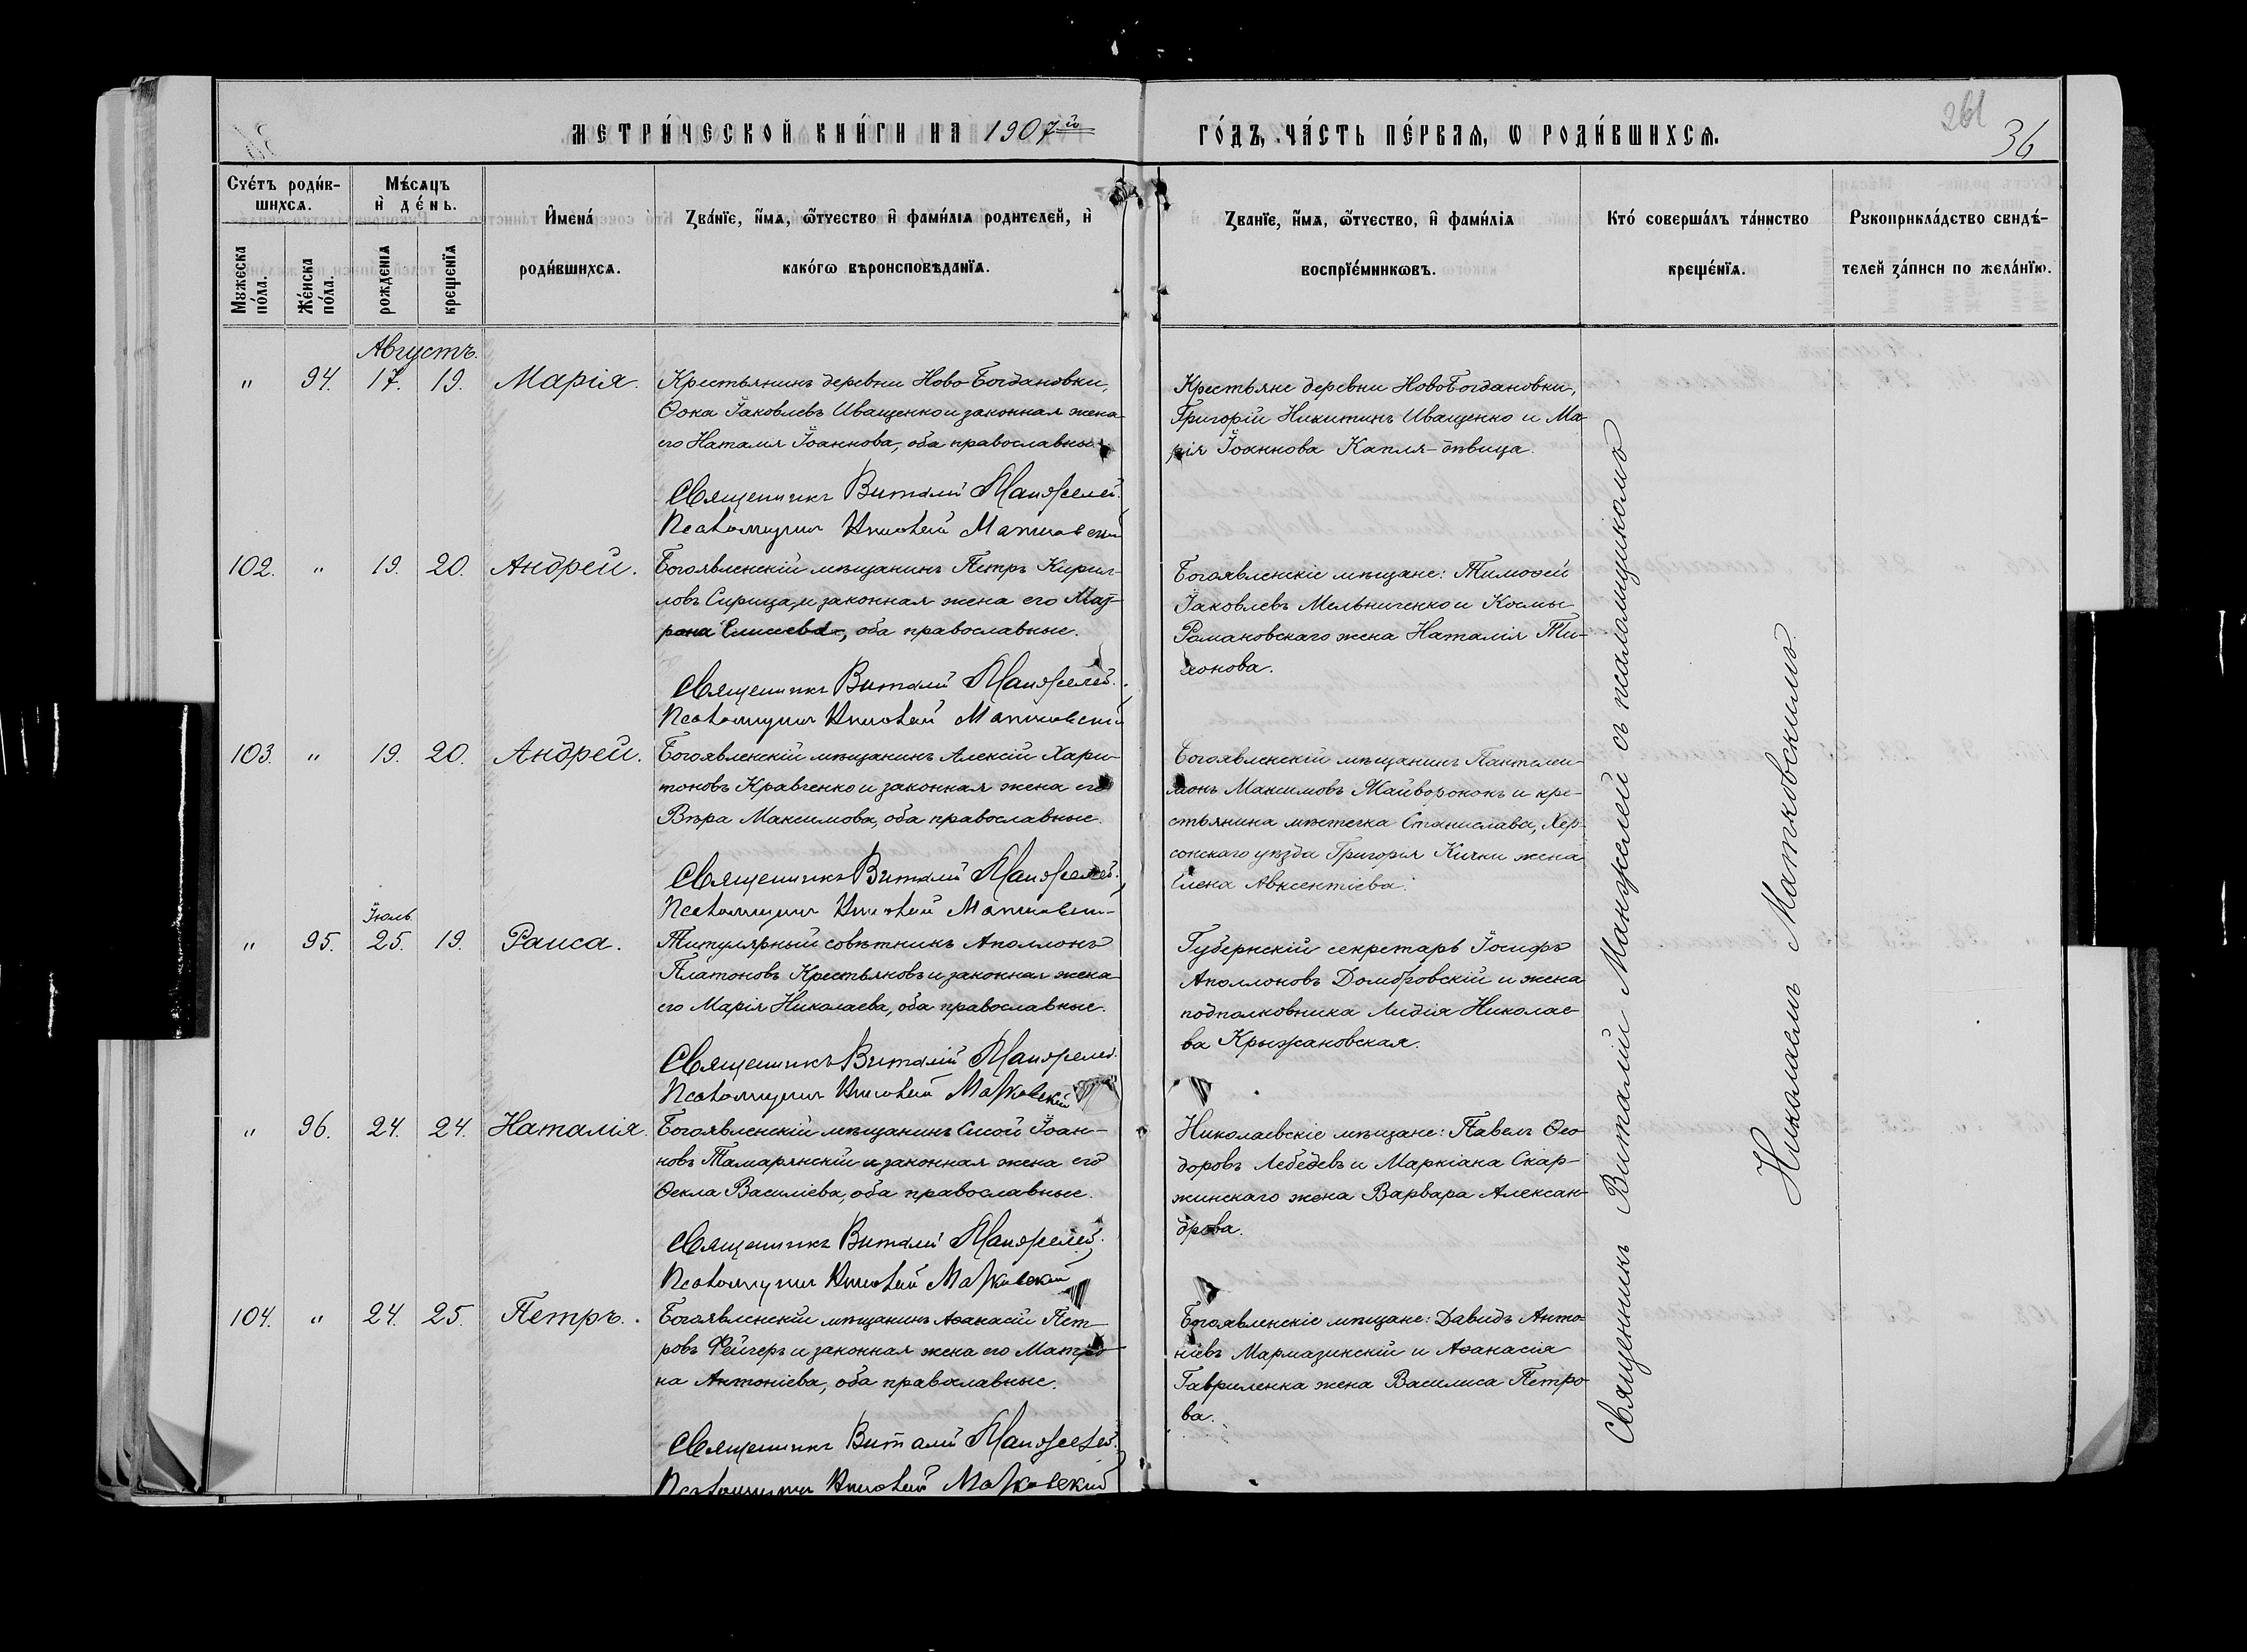 МЕТРИ́ЧЕСКОЙ КНИ́ГИ НА 1907го ГО́ДЪ, ЧА́СТЬ ПЕ́РВАѦ, Ѡ РОДИ́ВШИХСѦ.
261
36
Счéтъ роди́в-
шихсѧ.
Мужеска по́ла.
Жéнска по́ла.
Мѣ́сѧцъ
и҆ дéнь.
рожденїѧ
крещенїѧ
И҆мена́
роди́вшихсѧ.
Зва́нїе, и҆́мѧ, ѻ҆́тчество и҆ фами́лїѧ родителей, и҆
како́гѡ вѣроисповѣданїѧ.
Зва́нїе, и҆́мѧ, ѻ҆́тчество, и҆ фами́лїѧ
воспрїéмникѡвъ.
Кто́ соверша́лъ та́инство
крещéнїѧ.
Рукоприкла́дство свидѣ́-
телей за́писи по жела́нїю.
Августъ.
" 94. 17. 19. Марія.
Крестьянинъ деревни Ново-Богдановки,
Ѳока Іаковлевъ Иващенко и законная жена
его Наталія Іоаннова, оба православные
Священникъ Виталій Манжелей.
Псаломщикъ Николай Матковскій
Крестьяне деревни Ново-Богдановки,
Григорій Никитинъ Иващенко и Ма-
рія Іоаннова Капля-дѣвица.
102. " 19. 20. Андрей.
Богоявленскій мѣщанинъ Петръ Кирил-
ловъ Сирица, и законная жена его Мат-
рона Елисеева, оба православные.
Священникъ Виталій Манжелей.
Псаломщикъ Николай Матковскій
Богоявленскіе мѣщане: Тимоѳей
Іаковлевъ Мельниченко и Космы
Романовскаго жена Наталія Ти-
хонова.
103. " 19. 20. Андрей.
Богоявленскій мѣщанинъ Алексій Хари-
тоновъ Кравченко и законная жена его
Вѣра Максимова, оба православные.
Священникъ Виталій Манжелей.
Псаломщикъ Николай Матковскій
Богоявленскій мѣщанинъ Пантелеи-
монъ Максимовъ Майворонокъ и кре-
стьянина мѣстечка Станислава, Хер-
сонскаго уѣзда Григорія Кички жена
Елена Авксентіева.
Іюль
" 95. 25. 19. Раиса.
Титулярный совѣтникъ Аполлонъ
Платоновъ Крестьяновъ и законная жена
его Марія Николаева, оба православные.
Священникъ Виталій Манжелей.
Псаломщикъ Николай Матковскій
Губернскій секретарь Іосифъ
Аполлоновъ Домбровскій и жена
подполковника Лидія Николае-
ва Крыжановская.
" 96. 24. 24. Наталія.
Богоявленскій мѣщанинъ Сисой Іоан-
новъ Тамарянскій и законная жена его
Ѳекла Василіева, оба православные.
Священникъ Виталій Манжелей.
Псаломщикъ Николай Матковскій
Николаевскіе мѣщане: Павелъ Ѳео-
доровъ Лебедевъ и Маркіана Скар-
жинскаго жена Варвара Алексан-
дрова.
104. " 24. 25. Петръ.
Богоявленскій мѣщанинъ Аѳанасій Пет-
ровъ Фейгеръ и законная жена его Матро-
на Антоніева, оба православные.
Священникъ Виталій Манжелей.
Псаломщикъ Николай Матковскій
Богоявленскіе мѣщане: Давидъ Анто-
ніевъ Мармазинскій и Аѳанасія
Гавриленка жена Василиса Петро-
ва.
Священникъ Виталій Манжелей съ псаломщикомъ
Николаемъ Матковскимъ.